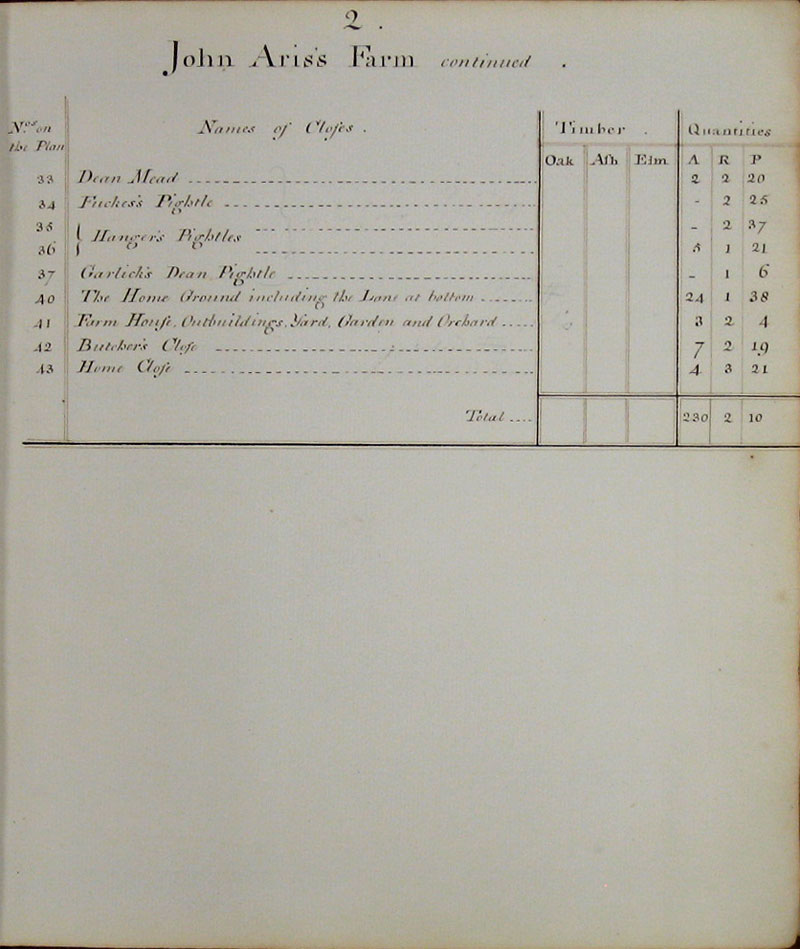 2.
John Aris's Farm continued.
Nos. on the Plan | Names of Closes. | Timber. | Quantities
Oak | Ash | Elm | A | R | P
33 Dean Mead 2 2 20
34 Pightle - 2 25
35 - 2 37
Hanger's Pightles
36 1 21
37 Garlick's Dean Pightle - 1 6
40 The Home Ground including the Lane at bottom 24 1 38
41 Farm House, Outbuildings, Yard, Garden and Orchard 3 2 4
42 Butcher's Close 7 2 19
43 Home Close 4 3 21
Total 230 2 10